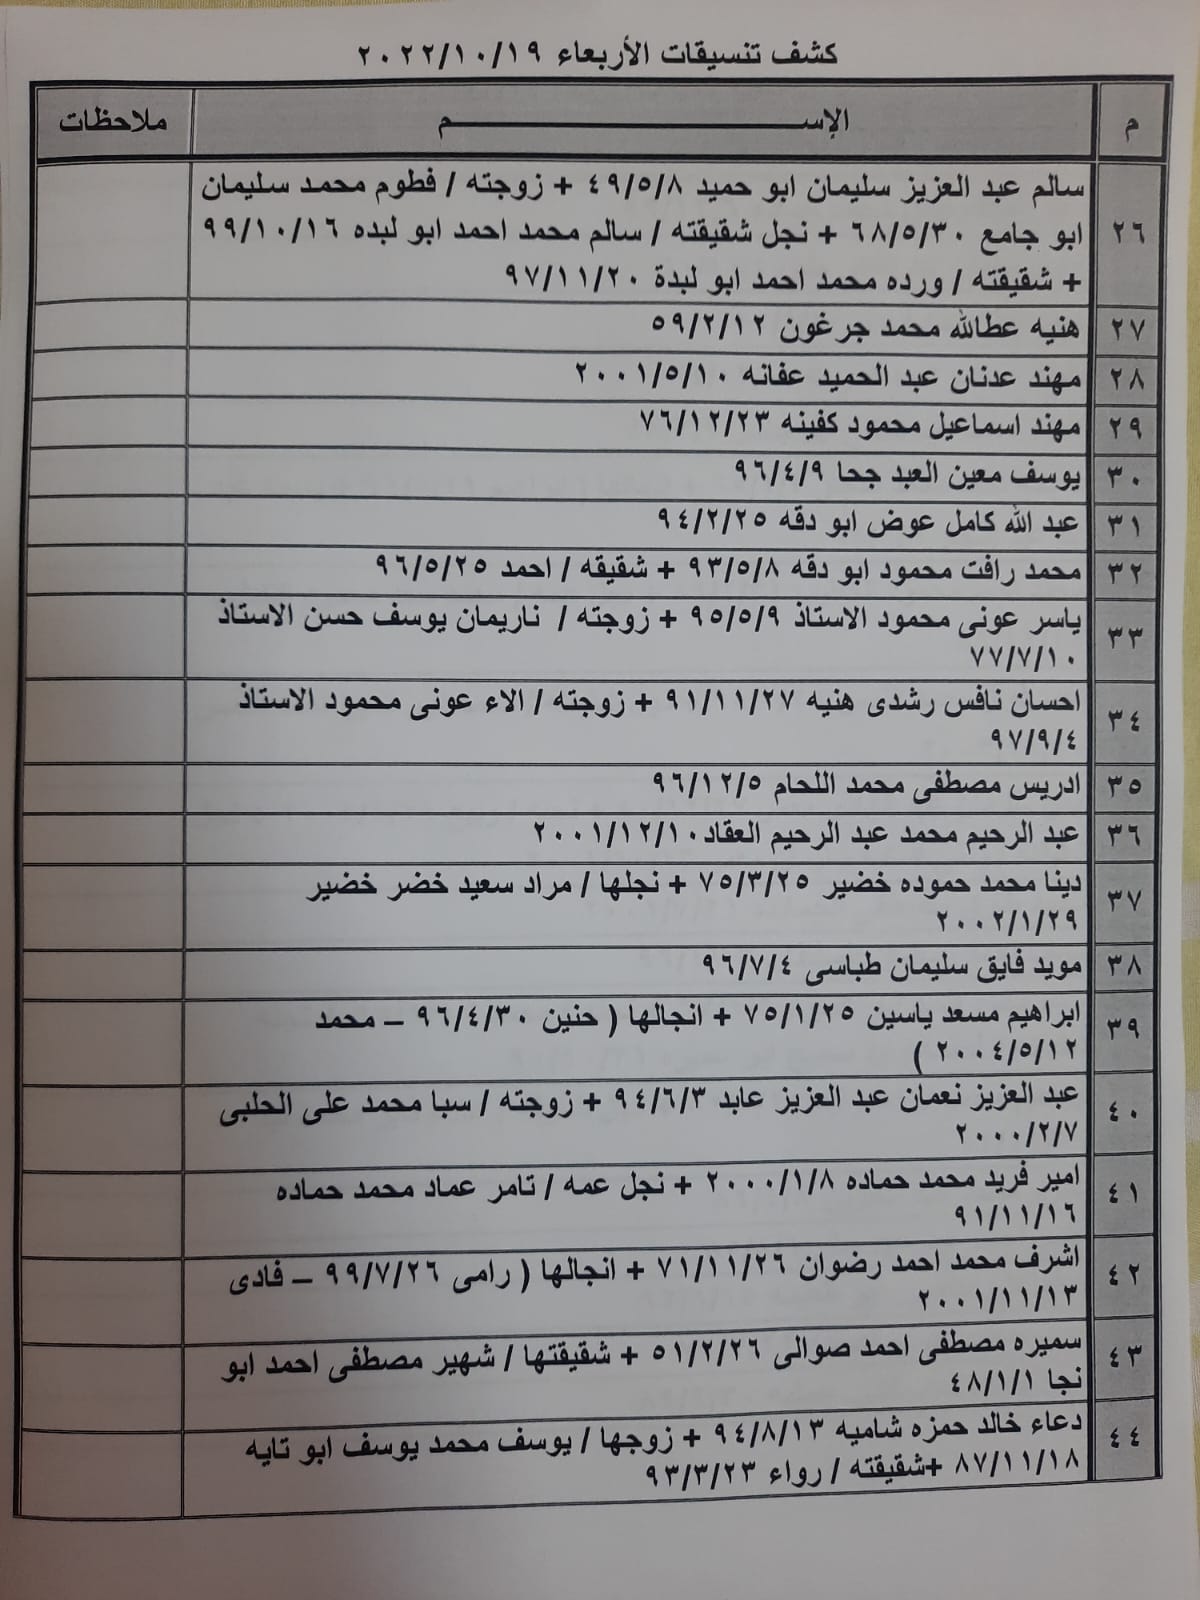 كشف تنسيقات الأربعاء ٢٠٢٢/١٠/١٩
م الإســـم ملاحظات
٢٦ سالم عبد العزيز سليمان ابو حميد ٤٩/٥/٨ + زوجته / فطوم محمد سليمان
ابو جامع ٦٨/٥/٣٠ + نجل شقيقته / سالم محمد احمد ابو لبده ٩٩/١٠/١٦
+ شقيقته / ورده محمد احمد ابو لبدة ٩٧/١١/٢٠
٢٧ هنيه عطالله محمد جرغون ٥٩/٢/١٢
٢٨ مهند عدنان عبد الحميد عفانه ٢٠٠١/٥/١٠
٢٩ مهند اسماعيل محمود كفينه ٧٦/١٢/٢٣
٣٠ يوسف معين العبد جحا ٩٦/٤/٩
٣١ عبد الله كامل عوض ابو دقه ٩٤/٢/٢٥
٣٢ محمد رافت محمود ابو دقه ٩٣/٥/٨ + شقيقه / احمد ٩٦/٥/٢٥
٣٣ ياسر عونى محمود الاستاذ ٩٥/٥/٩ + زوجته / ناريمان يوسف حسن الاستاذ
٧٧/٧/١٠
٣٤ احسان نافس رشدى هنيه ٩١/١١/٢٧ + زوجته / الاء عونى محمود الاستاذ
٩٧/٩/٤
٣٥ ادريس مصطفى محمد اللحام ٩٦/١٢/٥
٣٦ عبد الرحيم محمد عبد الرحيم العقاد٢٠٠١/١٢/١٠
٣٧ دينا محمد حموده خضير ٧٥/٣/٢٥ + نجلها / مراد سعيد خضر خضير
٢٠٠٢/١/٢٩
٣٨ مويد فايق سليمان طباسى ٩٦/٧/٤
٣٩ ابراهيم مسعد ياسين ٧٥/١/٢٥ + انجالها ( حنين ٩٦/٤/٣٠ – محمد
٢٠٠٤/٥/١٢ )
٤٠ عبد العزيز نعمان عبد العزيز عابد ٩٤/٦/٣ + زوجته / سبا محمد على الحلبى
٢٠٠٠/٢/٧
٤١ امير فريد محمد حماده ٢٠٠٠/١/٨ + نجل عمه / تامر عماد محمد حماده
٩١/١١/١٦
٤٢ اشرف محمد احمد رضوان ٧١/١١/٢٦ + انجالها ( رامى ٩٩/٧/٢٦ – فادى
٢٠٠١/١١/١٣
٤٣ سميره مصطفى احمد صوالى ٥١/٢/٢٦ + شقيقتها / شهير مصطفى احمد ابو
نجا ٤٨/١/١
٤٤ دعاء خالد حمزه شاميه ٩٤/٨/١٣ + زوجها / يوسف محمد يوسف ابو تايه
٨٧/١١/١٨ +شقيقته / رواء ٩٣/٣/٢٣